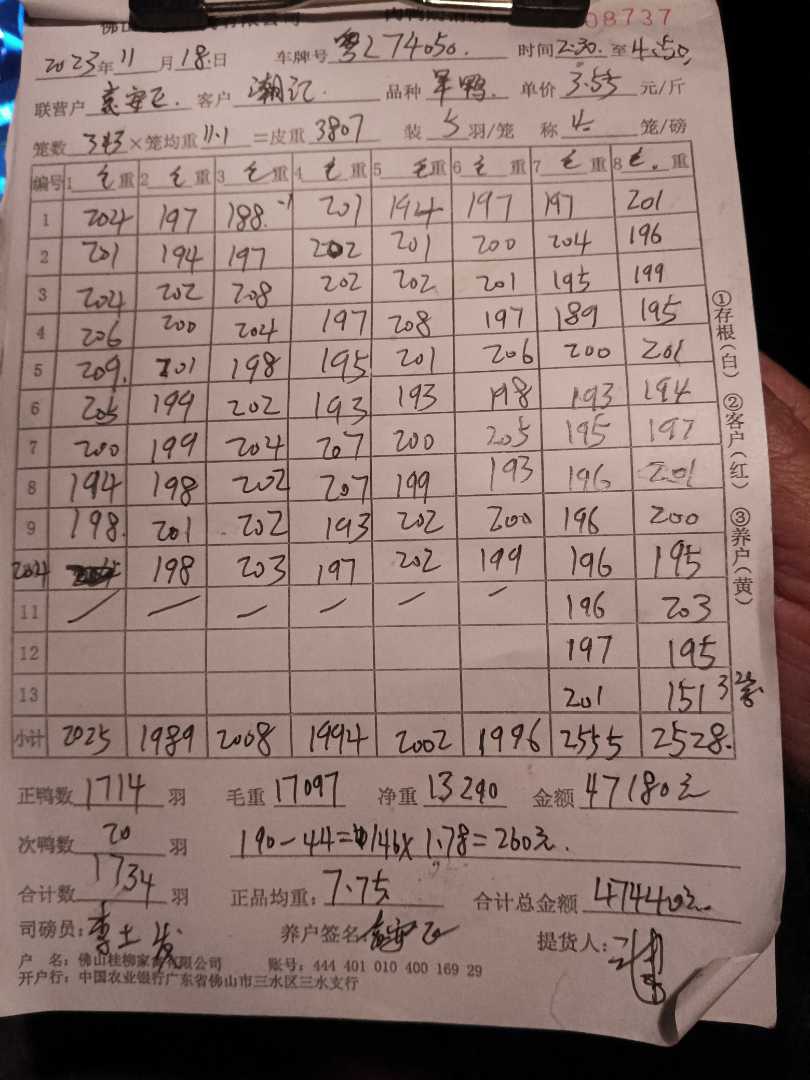 佛山 有限公司 肉鸭 08737
2023年11月18日 车牌号粤L74050. 时间2:30.至4:50
联营户 客户潮记. 品种 鸭. 单价3.55元/斤
笼数343×笼均重11.1=皮重3807 装5羽/笼 称4笼/磅
编号 1毛重 2毛重 3毛重 4毛重 5毛重 6毛重 7毛重 8毛重
1 204 197 188-1 201 194 197 197 201
2 201 194 197 202 201 200 204 196
3 204 202 208 202 202 201 195 199
4 206 200 204 197 208 197 189 195
5 209. 201 198 195 201 206 200 201
6 205 199 202 193 193 198 193 194
7 200 199 204 207 200 205 195 197
8 194 198 202 207 199 193 196 201
9 198. 201 202 193 202 200 196 200
204 198 203 197 202 199 196 195
11 196 203
12 197 195
13 201 151 3笼
小计 2025 1989 2008 1994 2002 1996 2555 2528.
正鸭数1714羽 毛重17097 净重13290 金额47180元
次鸭数20羽 190-44=146×1.78=260元.
合计数1734羽 正品均重:7.75 合计总金额47440元
司磅员:李土发 养户签名 提货人:
户 名:佛山桂柳家禽有限公司 账号:444 401 010 400 169 29
开户行:中国农业银行广东省佛山市三水区三水支行
①存根(白) ②客户(红) ③养户(黄)